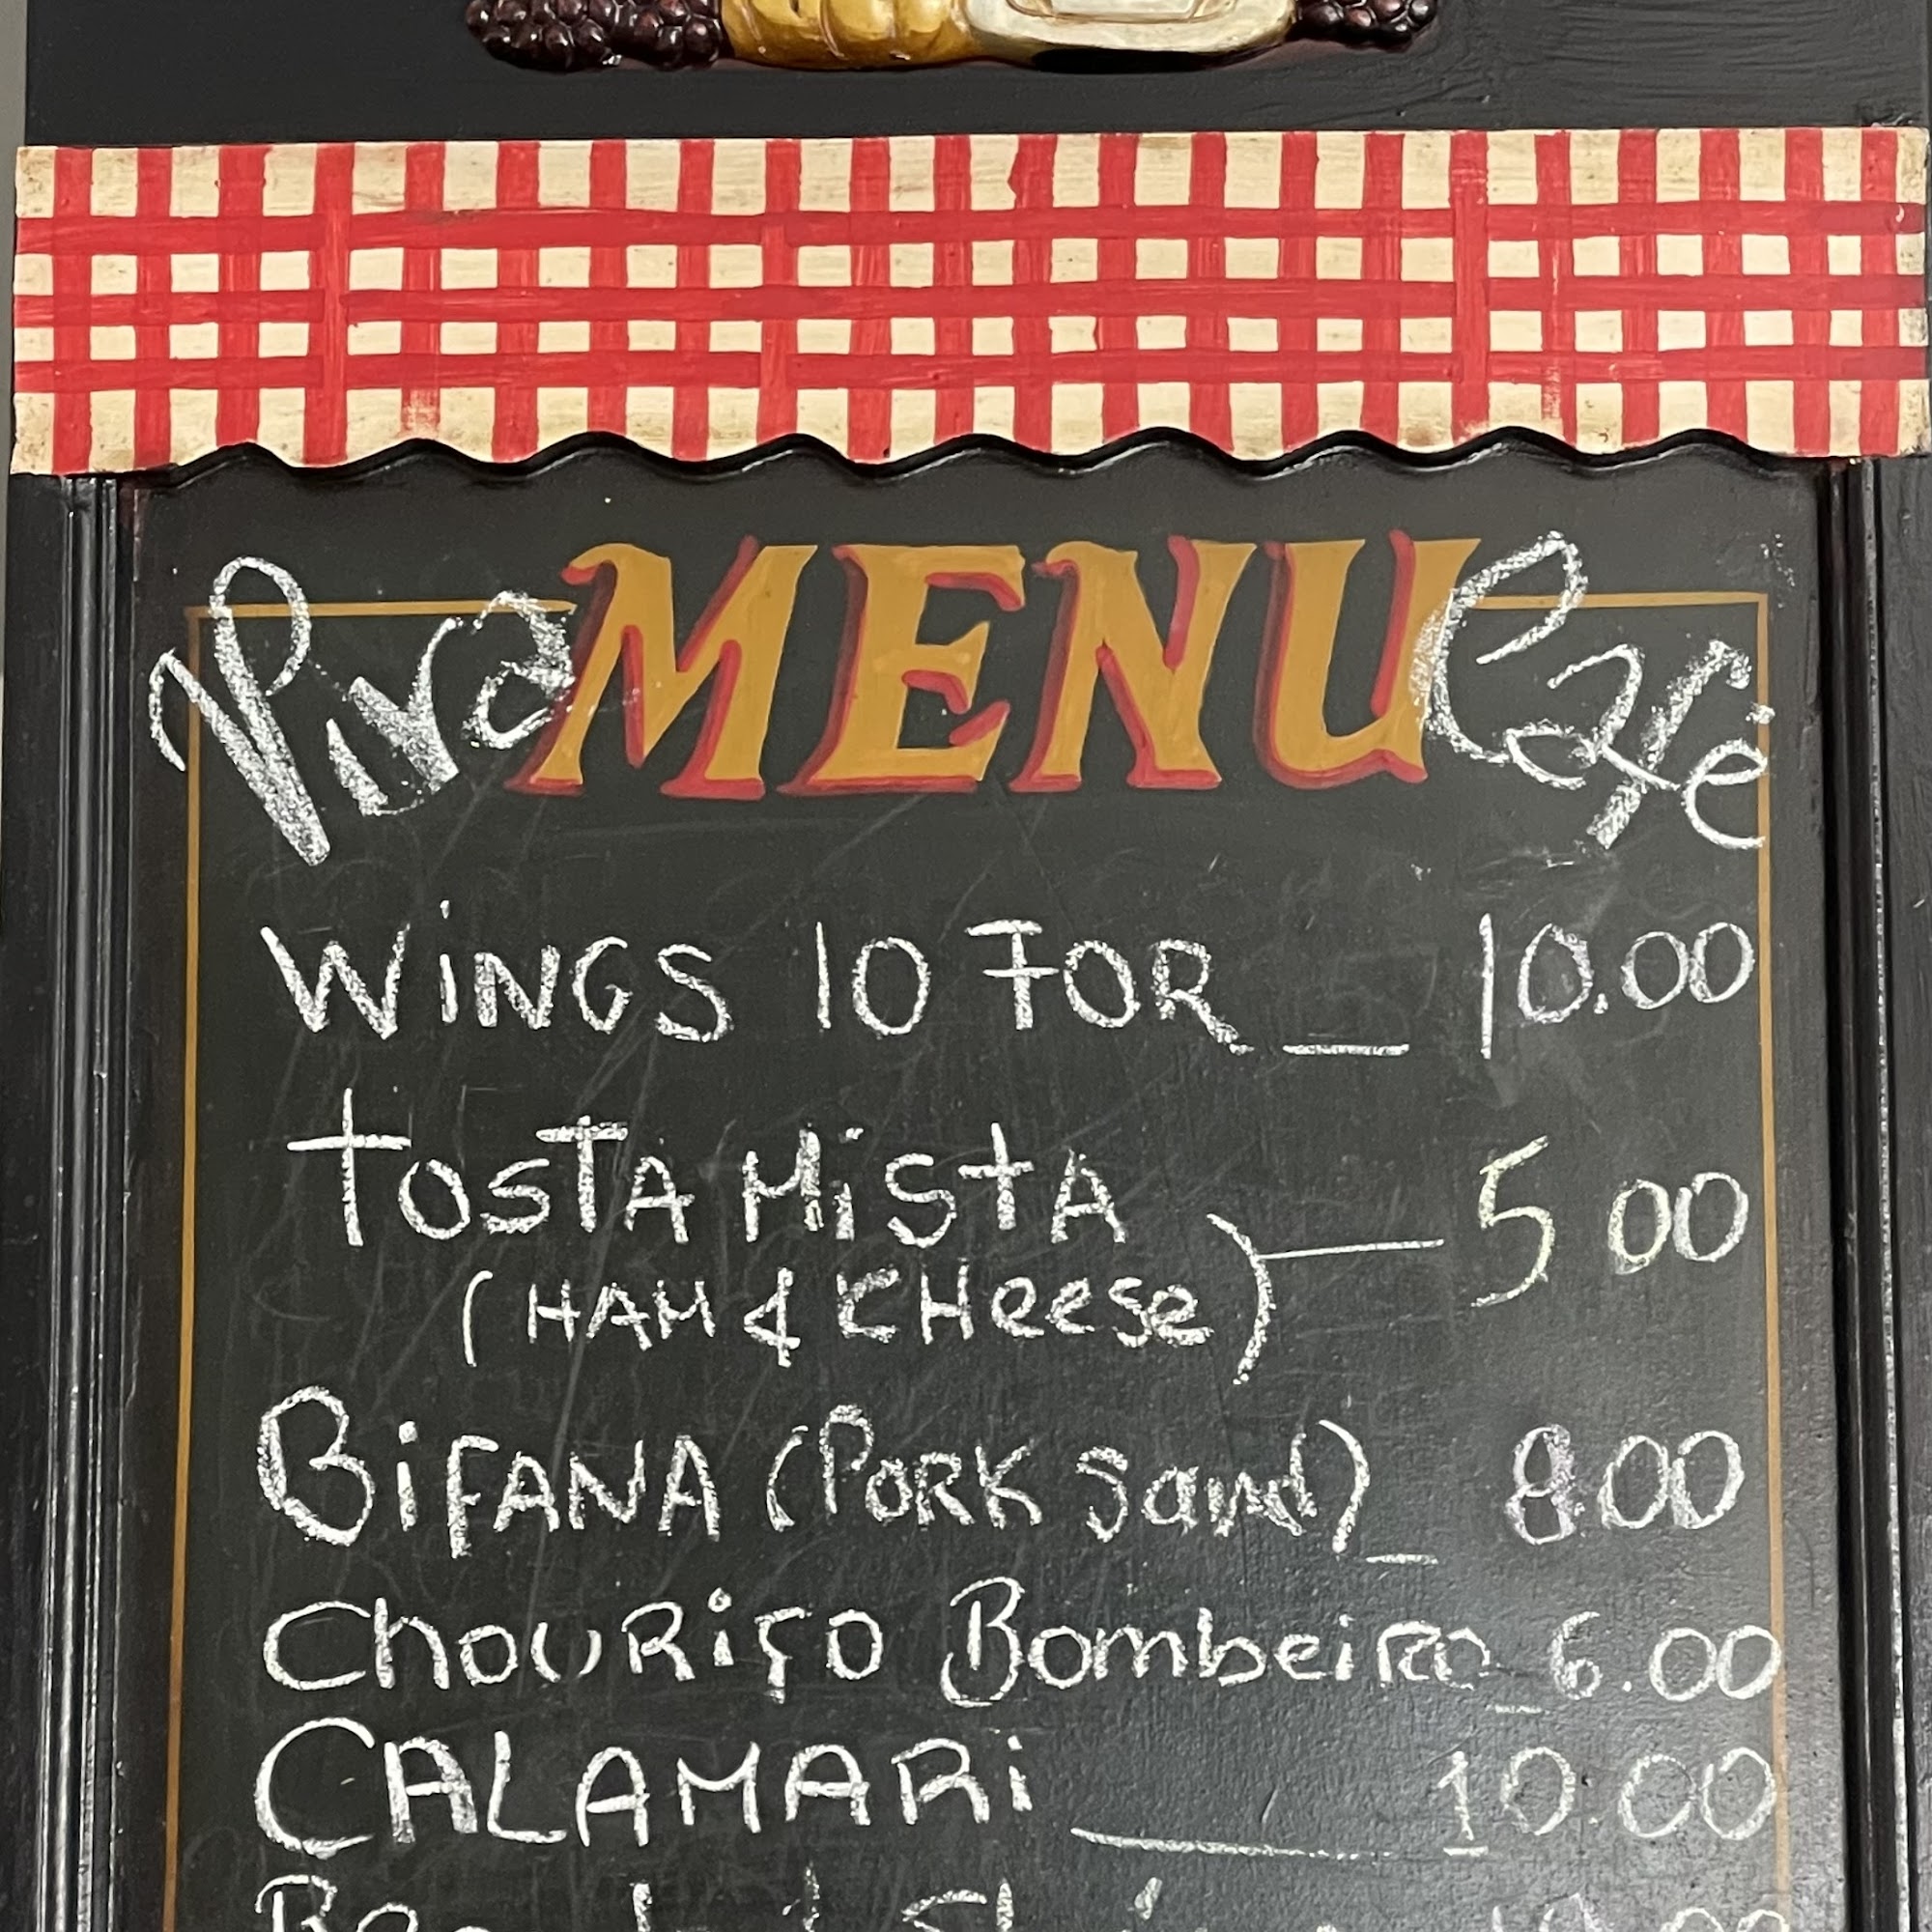 Piva MENU Cafe
WiNGS 10 FOR _ 10.00
TOSTA MiSTA
(HAM & CHeese) — 5 00
BiFANA (PORK Sand) _ 8.00
ChOURiÇO BombeiRO _ 6.00
CALAMARi ___ 10.00